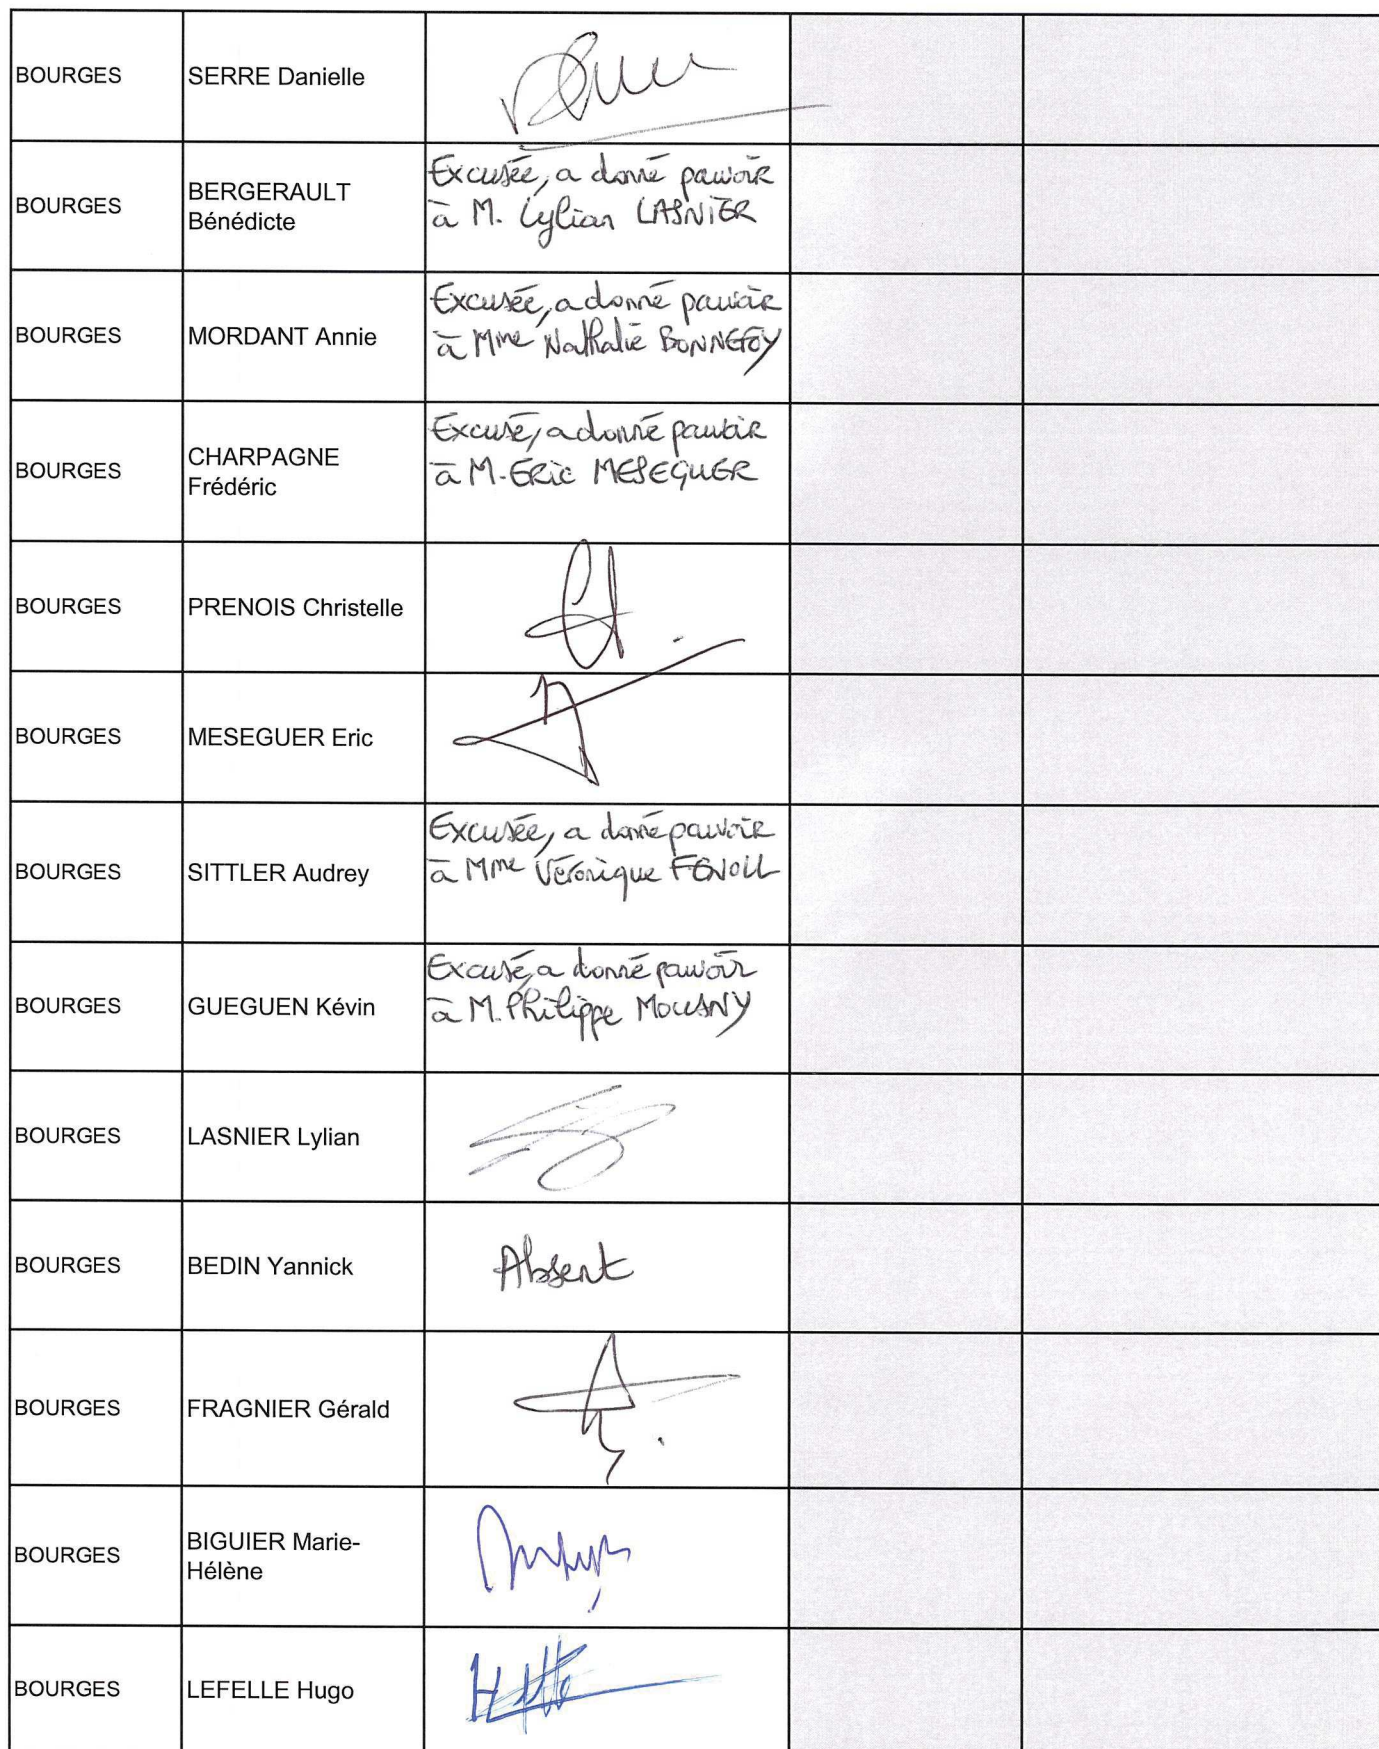 BOURGES SERRE Danielle
BOURGES BERGERAULT
Bénédicte
Excusée, a donné pouvoir
à M. Lylian LASNIER
BOURGES MORDANT Annie
Excusée, a donné pouvoir
à Mme Nathalie BONNEFOY
BOURGES CHARPAGNE
Frédéric
Excusé, a donné pouvoir
à M. Eric MESEGUER
BOURGES PRENOIS Christelle
BOURGES MESEGUER Eric
BOURGES SITTLER Audrey
Excusée, a donné pouvoir
à Mme Véronique FENOLL
BOURGES GUEGUEN Kévin
Excusé, a donné pouvoir
à M. Philippe MOUSNY
BOURGES LASNIER Lylian
BOURGES BEDIN Yannick Absent
BOURGES FRAGNIER Gérald
BOURGES BIGUIER Marie-
Hélène
BOURGES LEFELLE Hugo